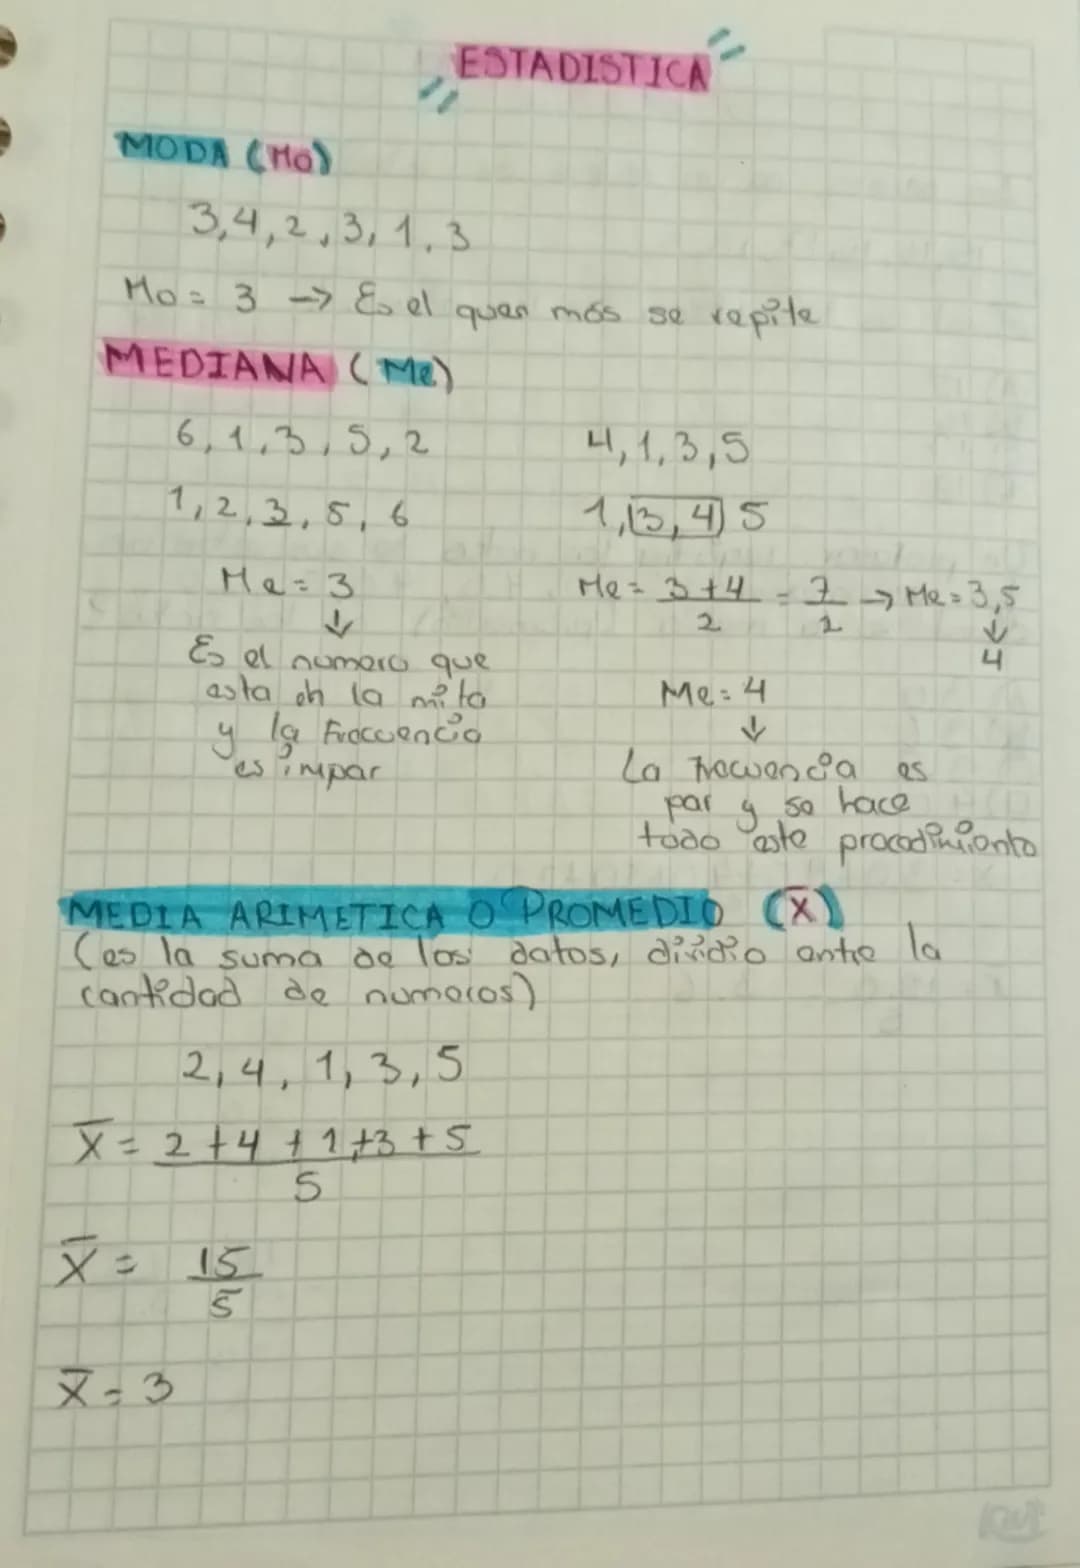 ESTADISTICA
MODA (Mo)
3,4,2,3,1,3
Mo = 3 → Es el quen más se repite
MEDIANA (Me)
6,1,3,5,2
1,2,3,5,6
Me = 3
↓
Es el numero que
esta en la mita
y la Frecuencia
es impar
4,1,3,5
1,3,4 5
Me = 3+4/2 = 7/2 → Me = 3,5
↓
4
Me = 4
↓
La Frecuencia es
par y se hace
todo este procedimiento
MEDIA ARIMETICA O PROMEDIO (X̅)
(es la suma de los datos, dividio entre la
cantidad de numeros)
2,4,1,3,5
X̅ = 2+4+1+3+5/5
X̅ = 15/5
X̅ = 3